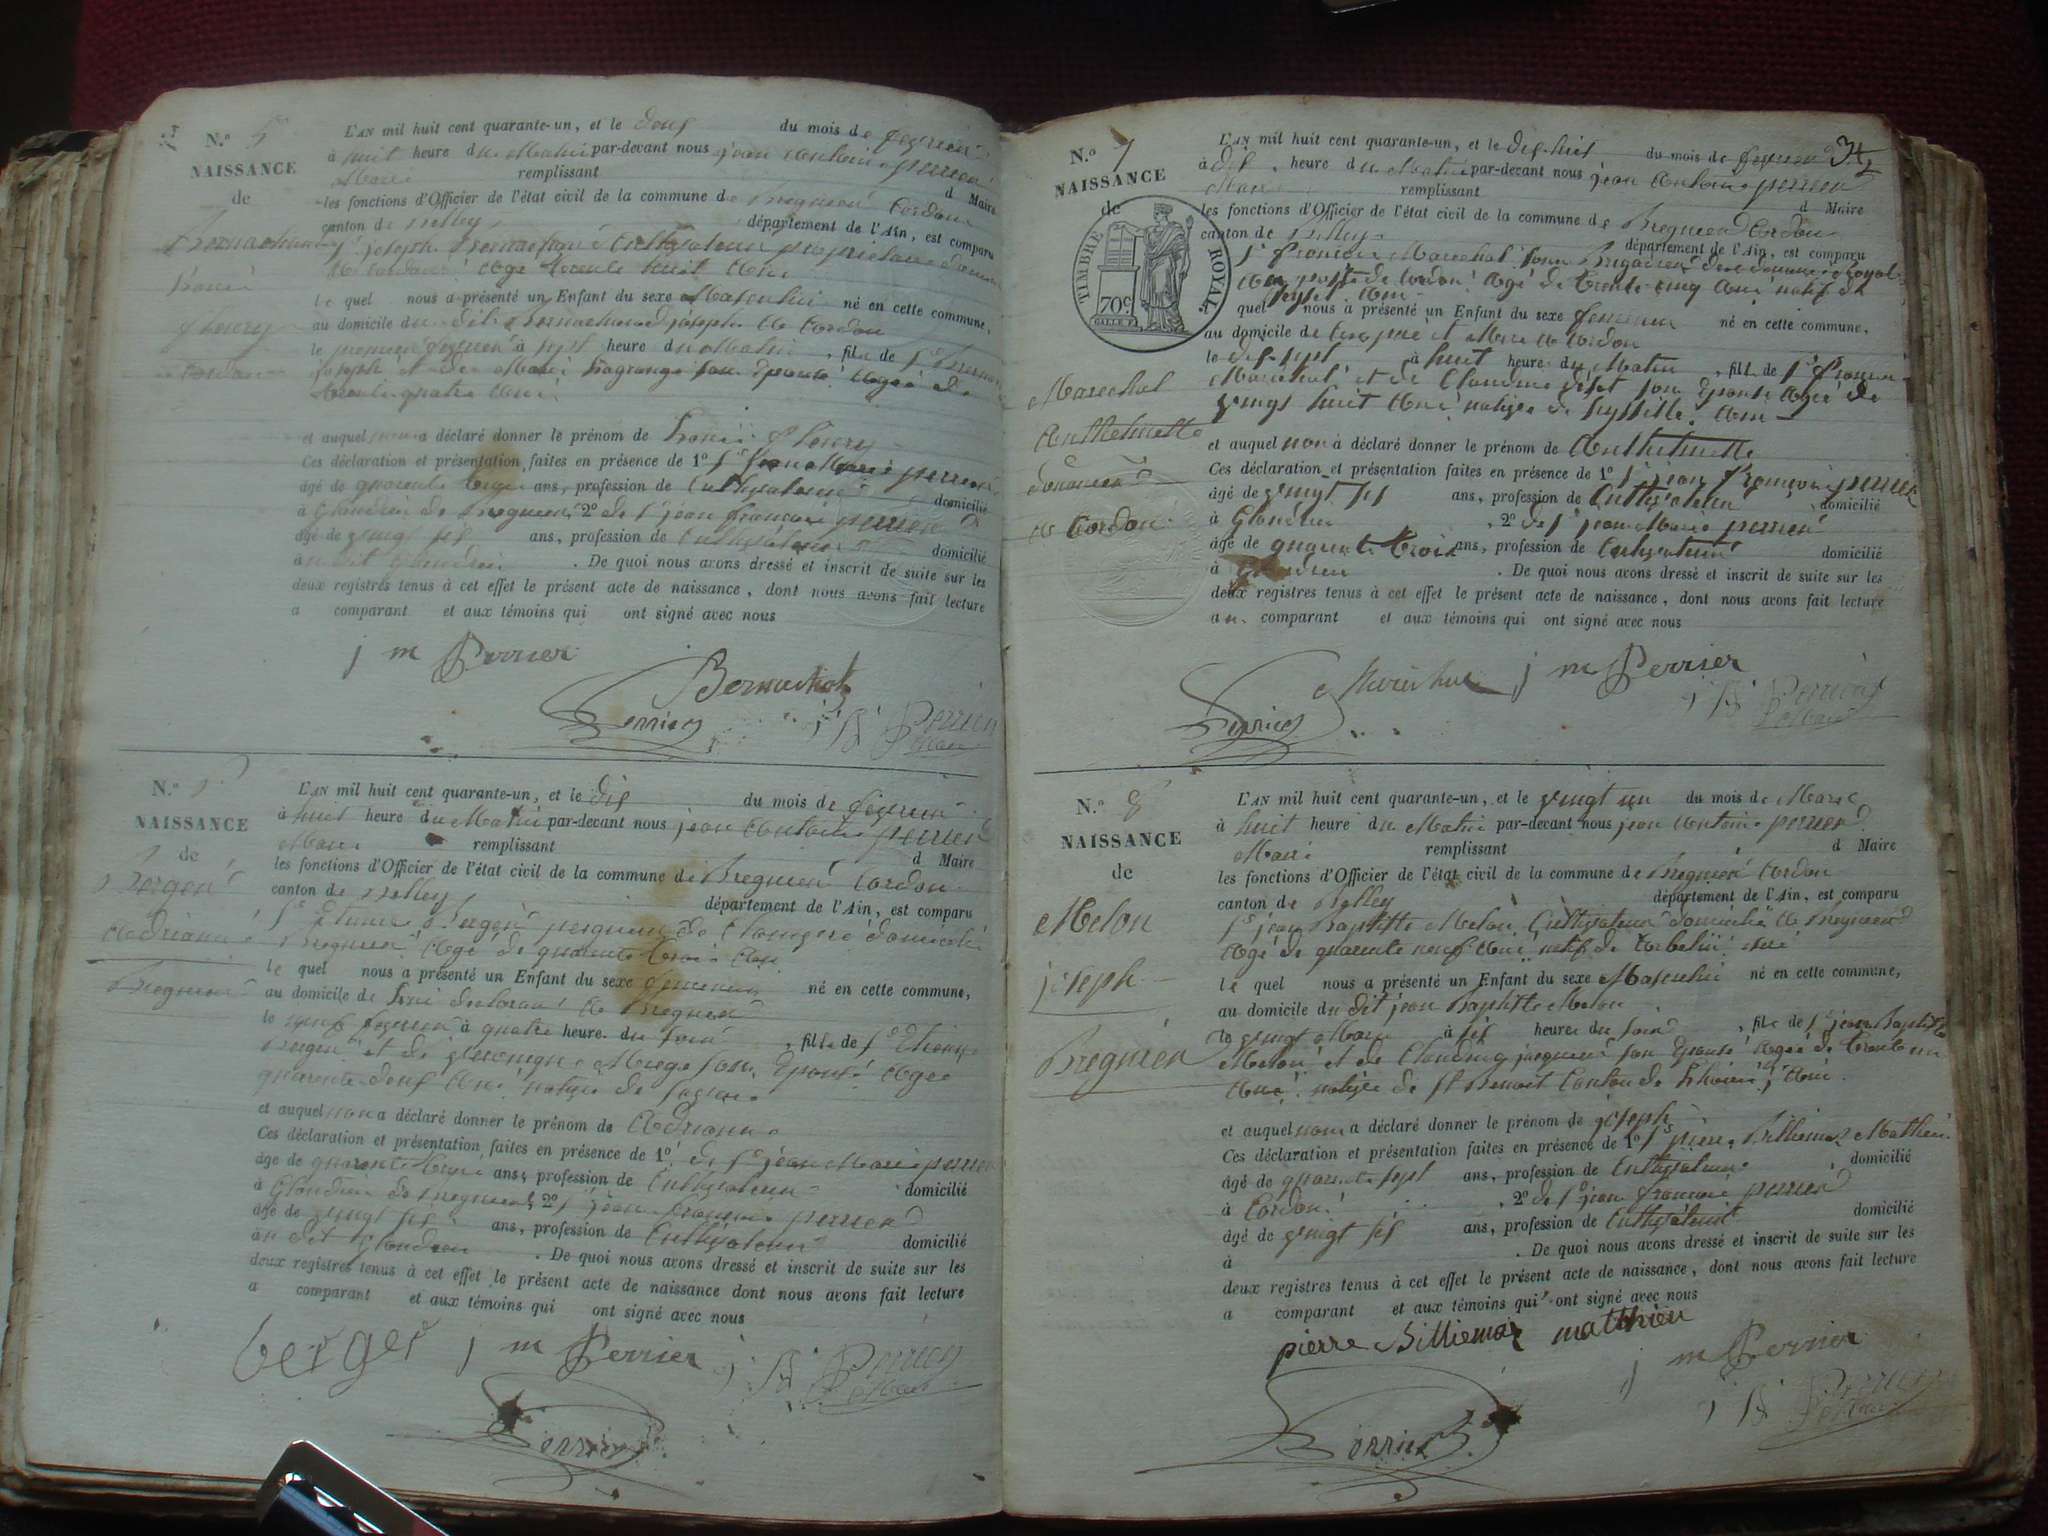 N.º 5
NAISSANCE
de
henry
L'AN mil huit cent quarante-un, et le deux du mois de fevrier
à huit heure du Matin par-devant nous jean antoine perrier
Maire remplissant d Maire
les fonctions d'Officier de l'état civil de la commune de Bregnier Cordon
canton de Belley département de l'Ain, est comparu
Sr joseph cultivateur propriétaire
de cordon agé trente huit ans
le quel nous a présenté un Enfant du sexe Masculin né en cette commune,
au domicile du dit joseph a Cordon
le premier fevrier à sept heure du Matin, fils de Sr
joseph et de Marie Lagrange son epouse agée de
trente quatre ans
et auquel nous a déclaré donner le prénom de henry
Ces déclaration et présentation faites en présence de 1º Sr jean Marie perrier
âgé de quarante trois ans, profession de Cultivateur domicilié
à Glandieu de Bregnier, 2º de Sr jean françois perrier
âgé de vingt six ans, profession de Cultivateur domicilié
à udit Glandieu. De quoi nous avons dressé et inscrit de suite sur les
deux registres tenus à cet effet le présent acte de naissance, dont nous avons fait lecture
a comparant et aux témoins qui ont signé avec nous
j m Perrier
Perrier
Perrier
N.º
NAISSANCE
de
Berger
Adrianne
Bregnier
L'AN mil huit cent quarante-un, et le dix du mois de fevrier
à huit heure du Matin par-devant nous jean antoine perrier
Maire remplissant d Maire
les fonctions d'Officier de l'état civil de la commune de Bregnier Cordon
canton de Belley département de l'Ain, est comparu
Sr Etienne Berger de domicilié
Bregnier agé de quarante trois ans
le quel nous a présenté un Enfant du sexe feminin né en cette commune,
au domicile de a Bregnier
le neuf fevrier à quatre heure du soir, fille de Sr Etienne
Berger et de son Epouse agée
quarante deux ans native de
et auquel nous a déclaré donner le prénom de Adrianne
Ces déclaration et présentation faites en présence de 1º de Sr jean Marie perrier
âgé de quarante trois ans, profession de Cultivateur domicilié
à Glandieu de Bregnier, 2º Sr jean françois perrier
âgé de vingt six ans, profession de Cultivateur domicilié
au dit Glandieu. De quoi nous avons dressé et inscrit de suite sur les
deux registres tenus à cet effet le présent acte de naissance dont nous avons fait lecture
a comparant et aux témoins qui ont signé avec nous
berger j m Perrier
Perrier
Perrier
34
N.º 7
NAISSANCE
de
TIMBRE ROYAL
70c
Marechal
Anthelmette
a Cordon
L'AN mil huit cent quarante-un, et le dix-huit du mois de fevrier
à dix heure du Matin par-devant nous jean antoine perrier
Maire remplissant d Maire
les fonctions d'Officier de l'état civil de la commune de Bregnier Cordon
canton de Belley département de l'Ain, est comparu
Sr françois Marechal Brigadier des douanes Royal
au poste de Cordon agé de trente cinq ans natif de
Seyssel Ain
quel nous a présenté un Enfant du sexe feminin né en cette commune,
au domicile de ses pere et Mere a Cordon
le dix sept à huit heure du Matin, fille de Sr françois
Maréchal et de Claudine son Epouse agée de
vingt huit ans native de Ain
et auquel nous a déclaré donner le prénom de Anthelmette
Ces déclaration et présentation faites en présence de 1º Sr jean françois perrier
âgé de vingt six ans, profession de Cultivateur domicilié
à Glandieu, 2º de Sr jean Marie perrier
âgé de quarante trois ans, profession de Cultivateur domicilié
à Glandieu. De quoi nous avons dressé et inscrit de suite sur les
deux registres tenus à cet effet le présent acte de naissance, dont nous avons fait lecture
au comparant et aux témoins qui ont signé avec nous
j m Perrier
Perrier
Perrier
N.º 8
NAISSANCE
de
Melon
joseph
Bregnier
L'AN mil huit cent quarante-un, et le vingt un du mois de Mars
à huit heure du Matin par-devant nous jean antoine perrier
Maire remplissant d Maire
les fonctions d'Officier de l'état civil de la commune de Bregnier Cordon
canton de Belley département de l'Ain, est comparu
Sr jean Baptiste Melon Cultivateur domicilié a Bregnier
agé de quarante neuf ans natif de Corbelin isere
le quel nous a présenté un Enfant du sexe Masculin né en cette commune,
au domicile du dit jean Baptiste Melon
le vingt Mars à six heure du soir, fils de Sr jean Baptiste
Melon et de Claudine son Epouse agée de trente un
ans native de St Benoit Canton de Lhuis Ain
et auquel nous a déclaré donner le prénom de joseph
Ces déclaration et présentation faites en présence de 1º Sr pierre Billiemaz Mathieu
âgé de quarante sept ans, profession de Cultivateur domicilié
à Cordon, 2º de Sr jean françois perrier
âgé de vingt six ans, profession de Cultivateur domicilié
à . De quoi nous avons dressé et inscrit de suite sur les
deux registres tenus à cet effet le présent acte de naissance, dont nous avons fait lecture
a comparant et aux témoins qui ont signé avec nous
pierre Billiemaz matthieu
j m Perrier
Perrier
Perrier